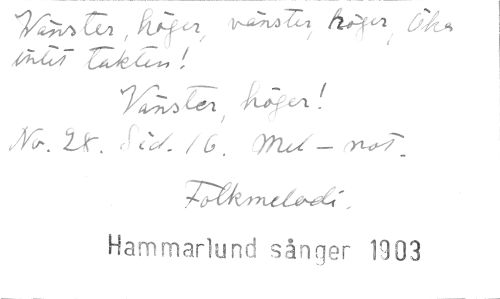 Vänster, höger, vänster, höger, öka
intet takten!
Vänster, höger!
No. 28. Sid. 16. Mel-not.
Folkmelodi.
Hammarlund sånger 1903